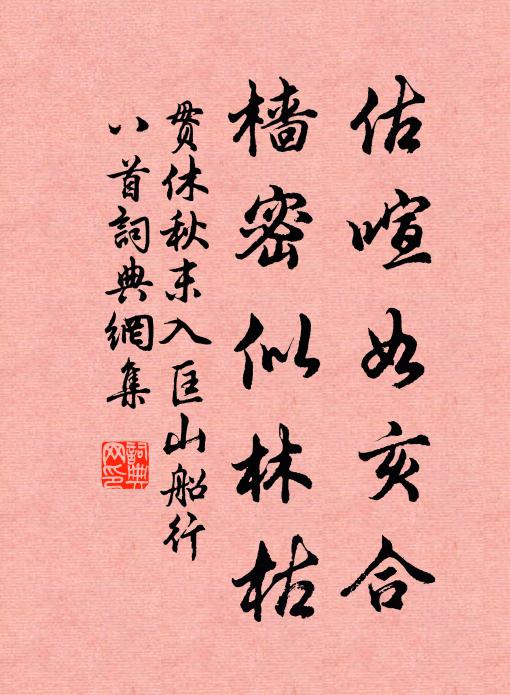 估喧如亥合
樯密似林枯
贯休秋末入匡山船行
八首詞典網集
詞典
网印